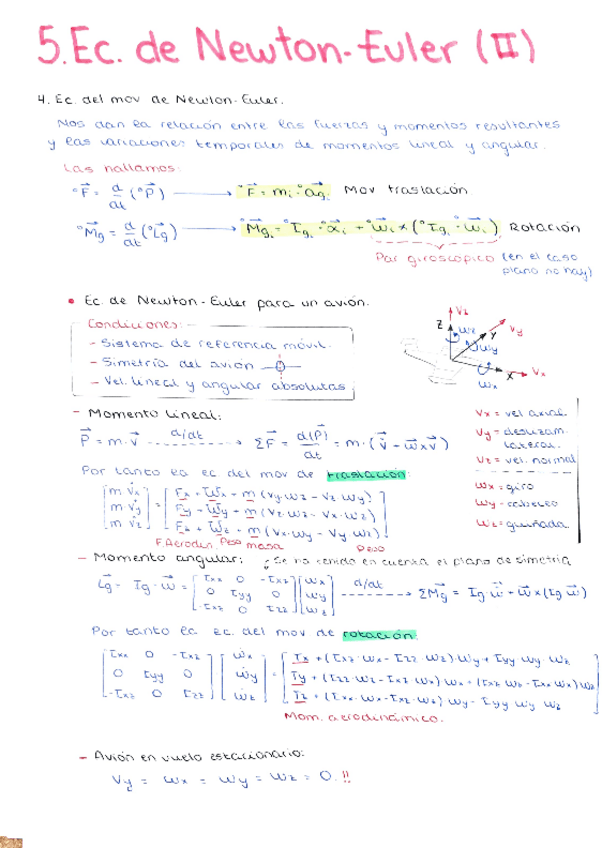 5. Ec. de Newton-Euler (II)
4. Ec. del mov de Newton-Euler.
Nos dan la relación entre las fuerzas y momentos resultantes
y las variaciones temporales de momentos lineal y angular.
Las hallamos:
°F⃗ = d/dt (°P⃗) → °F⃗ = mᵢ · °a⃗gᵢ Mov traslación
°M⃗g = d/dt (°L⃗g) → °M⃗gᵢ = °Igᵢ · °α⃗ᵢ + °ω⃗ᵢ × (°Igᵢ · °ω⃗ᵢ) Rotación
Par giroscópico (en el caso
plano no hay)
• Ec. de Newton-Euler para un avión.
Condiciones:
- Sistema de referencia móvil.
- Simetría del avión
- Vel. lineal y angular absolutas
Z Vz ωz Y Vy ωy X Vx ωx
- Momento lineal:
P⃗ = m · v⃗ d/dt → ΣF⃗ = d(P⃗)/dt = m · (v⃗ - ω⃗xv⃗)
Vx = vel axial.
Vy = deslizam.
lateral.
Vz = vel. normal
ωx = giro
ωy = cabeceo
ωz = guiñada.
Por tanto la ec del mov de traslación:
[m v̇x] = [Fx + Wx - m (Vy·ωz - Vz ωy)]
[m v̇y] [Fy - Wy - m (Vz·ωz - Vx·ωz)]
[m v̇z] [Fz + Wz - m (Vx·ωy - Vy ωx)]
F.Aerodin. Peso masa Peso
- Momento angular: ¿Se ha tenido en cuenta el plano de simetría
L⃗g = Ig · ω⃗ = [Ixx 0 -Ixz] [ωx] d/dt → ΣM⃗g = Ig · ω⃗ + ω⃗ x (Ig ω⃗)
[0 Iyy 0] [ωy]
[-Ixz 0 Izz] [ωz]
Por tanto la ec. del mov de rotación:
[Ixx 0 -Ixz] [ω̇x] = [Tx + (Ixz·ωx - Izz ωz)·ωy + Iyy ωy ωz]
[0 Iyy 0] [ω̇y] [Ty + (Izz·ωz - Ixz ωx) ωx = (Ixz ωz - Ixx ωx) ωz]
[-Ixz 0 Izz] [ω̇z] [Tz + (Ixx·ωx - Ixz·ωz) ωy - Iyy ωy ωx]
Mom. aerodinámico.
- Avión en vuelo estacionario:
Vy = ωx = ωy = ωz = 0.!!